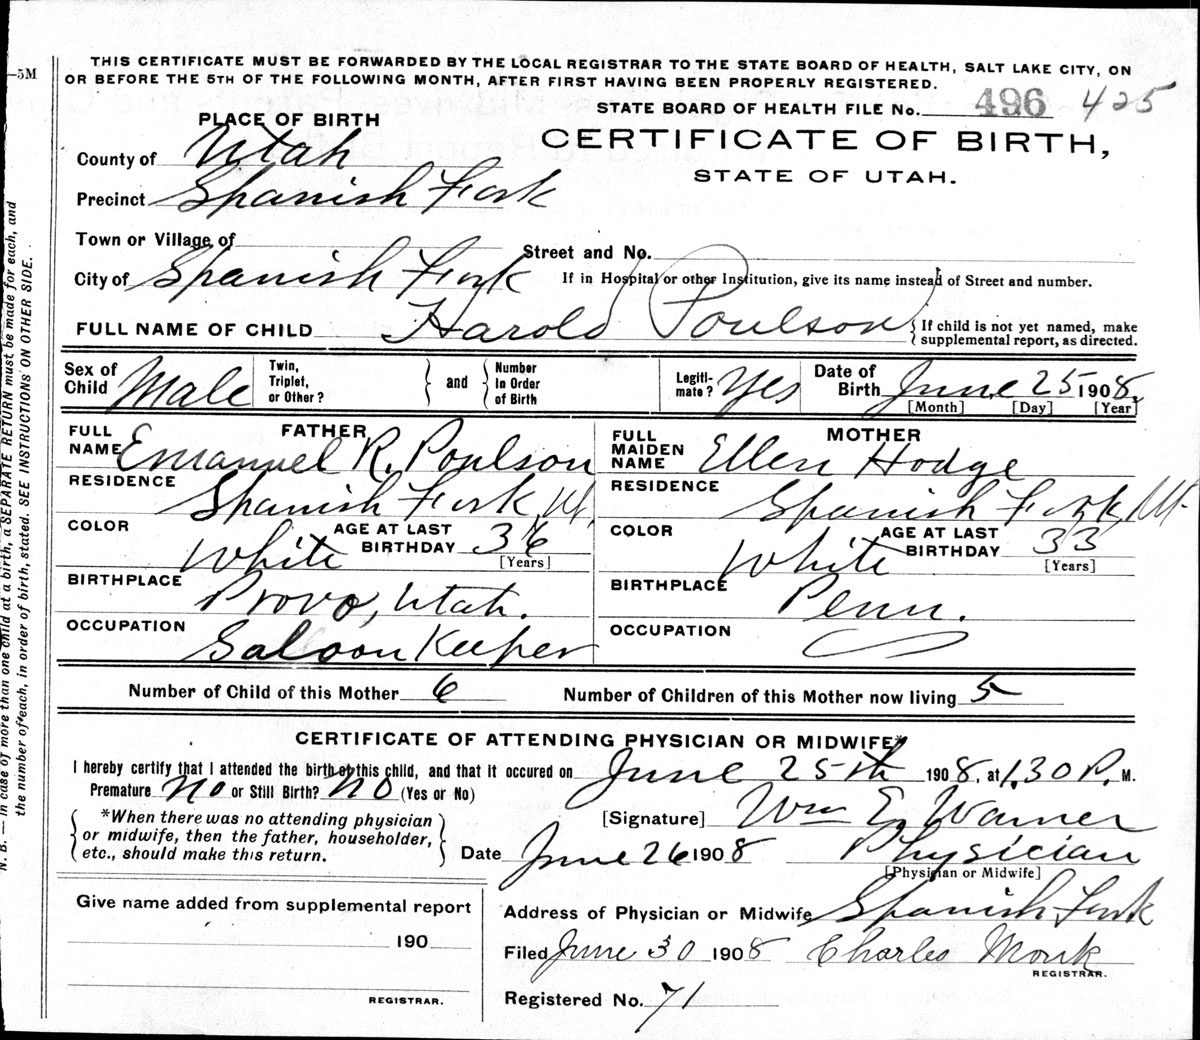 —5M
THIS CERTIFICATE MUST BE FORWARDED BY THE LOCAL REGISTRAR TO THE STATE BOARD OF HEALTH, SALT LAKE CITY, ON
OR BEFORE THE 5TH OF THE FOLLOWING MONTH, AFTER FIRST HAVING BEEN PROPERLY REGISTERED.
STATE BOARD OF HEALTH FILE No. 496 425
PLACE OF BIRTH
CERTIFICATE OF BIRTH,
STATE OF UTAH.
County of Utah
Precinct Spanish Fork
Town or Village of
Street and No.
City of Spanish Fork
If in Hospital or other Institution, give its name instead of Street and number.
FULL NAME OF CHILD Harold Poulson { If child is not yet named, make
supplemental report, as directed.
Sex of Child Male Twin, Triplet, or Other? } and { Number In Order of Birth Legiti-mate? Yes Date of Birth June 25 1908.
[Month] [Day] [Year]
FATHER
FULL NAME Emanuel R. Poulson
RESIDENCE Spanish Fork, Ut.
COLOR White AGE AT LAST BIRTHDAY 36
[Years]
BIRTHPLACE Provo, Utah.
OCCUPATION Saloon Keeper
MOTHER
FULL MAIDEN NAME Ellen Hodge
RESIDENCE Spanish Fork, Ut.
COLOR White AGE AT LAST BIRTHDAY 33
[Years]
BIRTHPLACE Penn.
OCCUPATION
Number of Child of this Mother 6 Number of Children of this Mother now living 5
CERTIFICATE OF ATTENDING PHYSICIAN OR MIDWIFE*
I hereby certify that I attended the birth of this child, and that it occured on June 25th 1908, at 1.30 P. M.
Premature No or Still Birth? No (Yes or No)
{ *When there was no attending physician
or midwife, then the father, householder,
etc., should make this return. }
[Signature] Wm E. Warner
Date June 26 1908 Physician
[Physician or Midwife]
Give name added from supplemental report
190
REGISTRAR.
Address of Physician or Midwife Spanish Fork
Filed June 30 1908 Charles Monk
REGISTRAR.
Registered No. 71
N. B. — In case of more than one child at a birth, a SEPARATE RETURN must be made for each, and
the number of each, in order of birth, stated. SEE INSTRUCTIONS ON OTHER SIDE.